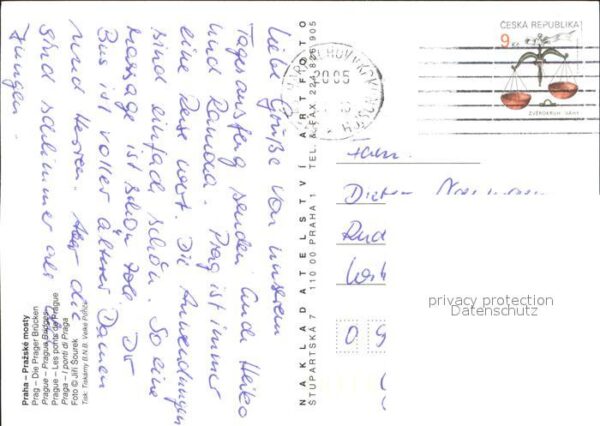 Liebe Grüße von unserem
Tagesausflug senden Heiko
und Ramona. Prag ist immer
eine Reise wert. Die Anwendungen
sind einfach schön. So eine
Massage ist schon toll. Der
Bus ist voller älterer Damen
und Herren. Aber die
sind schlimmer als
Jungen.
Praha – Pražské mosty
Prag – Die Prager Brücken
Prague – Prague Bridges
Prague – Les ponts de Prague
Praga – I ponti di Praga
Foto © Jiří Šourek
Tisk: Tiskárny B.N.B. Velké Poříčí
NAKLADATELSTVÍ ARTFOTO
ŠTUPARTSKÁ 7 110 00 PRAHA 1 TEL. & FAX 224 826 905
ČESKÁ REPUBLIKA
9 Kč
ZVĚROKRUH - VÁHY
Fam.
Dieter
privacy protection
Datenschutz
0 9